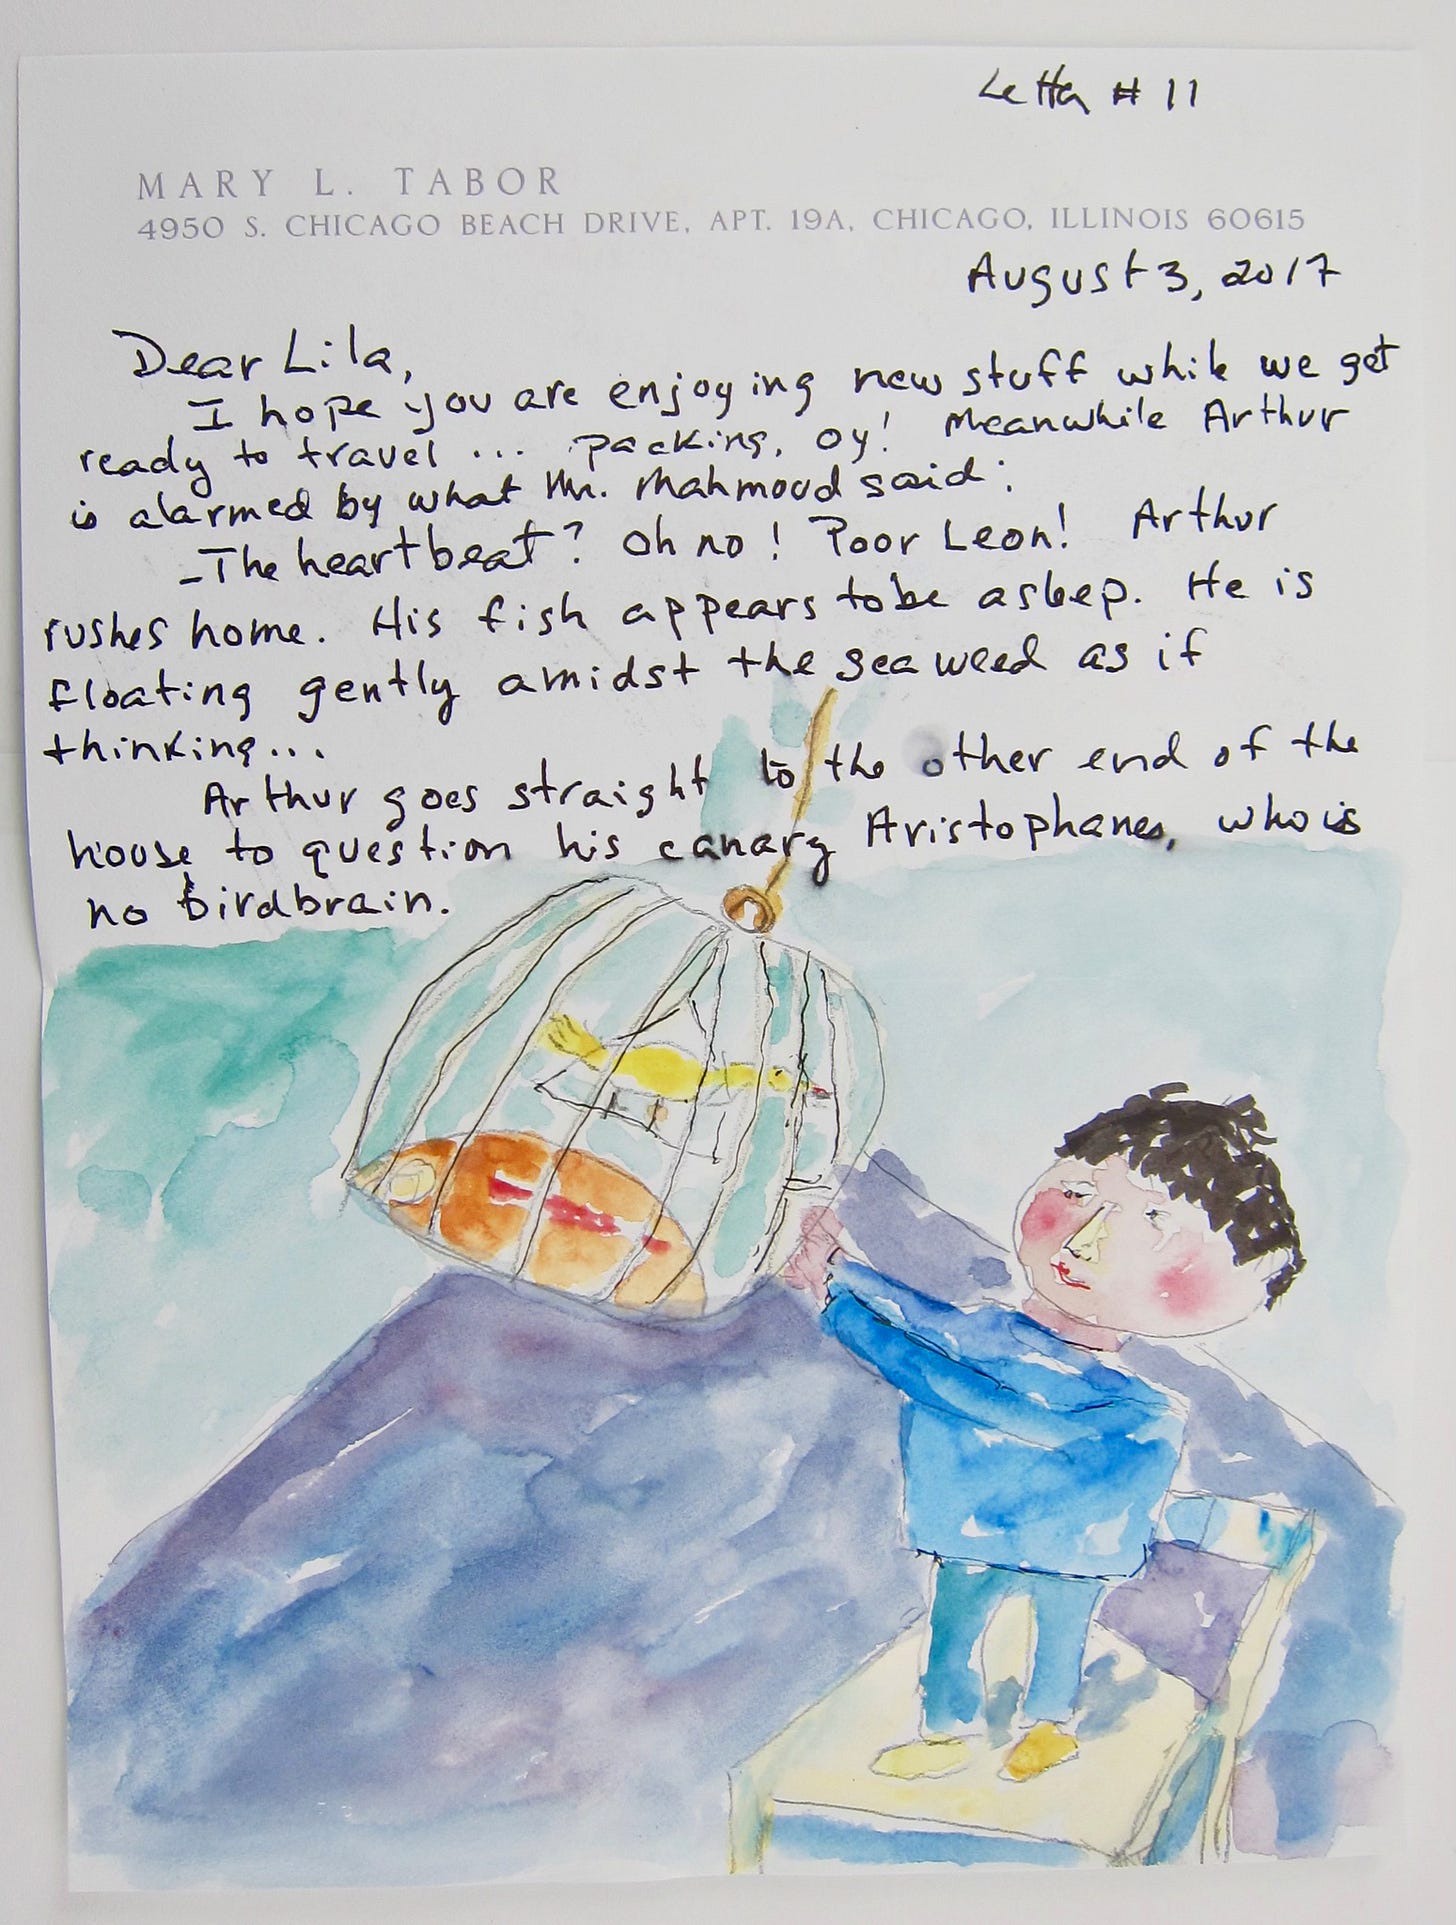 Letter # 11
MARY L. TABOR
4950 S. CHICAGO BEACH DRIVE, APT. 19A, CHICAGO, ILLINOIS 60615
August 3, 2017
Dear Lila,
I hope you are enjoying new stuff while we get
ready to travel ... packing, oy! Meanwhile Arthur
is alarmed by what Mr. Mahmoud said:
- The heartbeat? Oh no! Poor Leon! Arthur
rushes home. His fish appears to be asleep. He is
floating gently amidst the seaweed as if
thinking...
Arthur goes straight to the other end of the
house to question his canary Aristophanes, who is
no birdbrain.